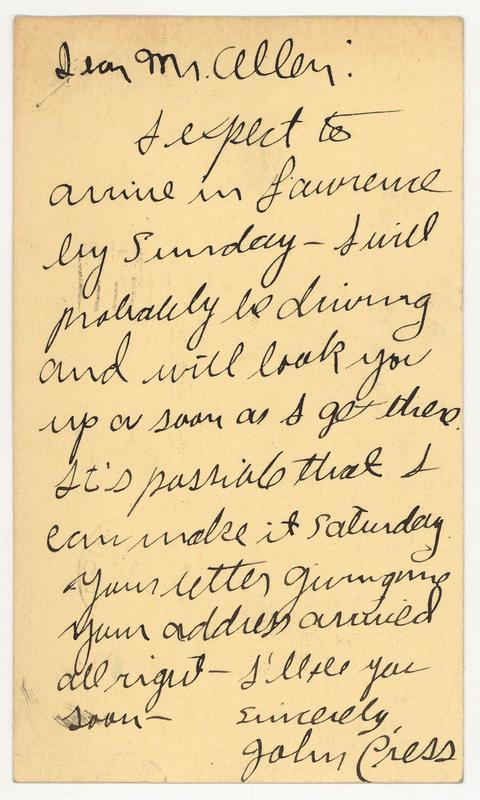 Dear Mr. Allen:
I expect to
arrive in Lawrence
by Sunday – I will
probably be driving
and will look you
up a soon as I get there.
It's possible that I
can make it Saturday.
Your letter giving me
your address arrived
all right – I'll see you
soon –
Sincerely,
John Cress